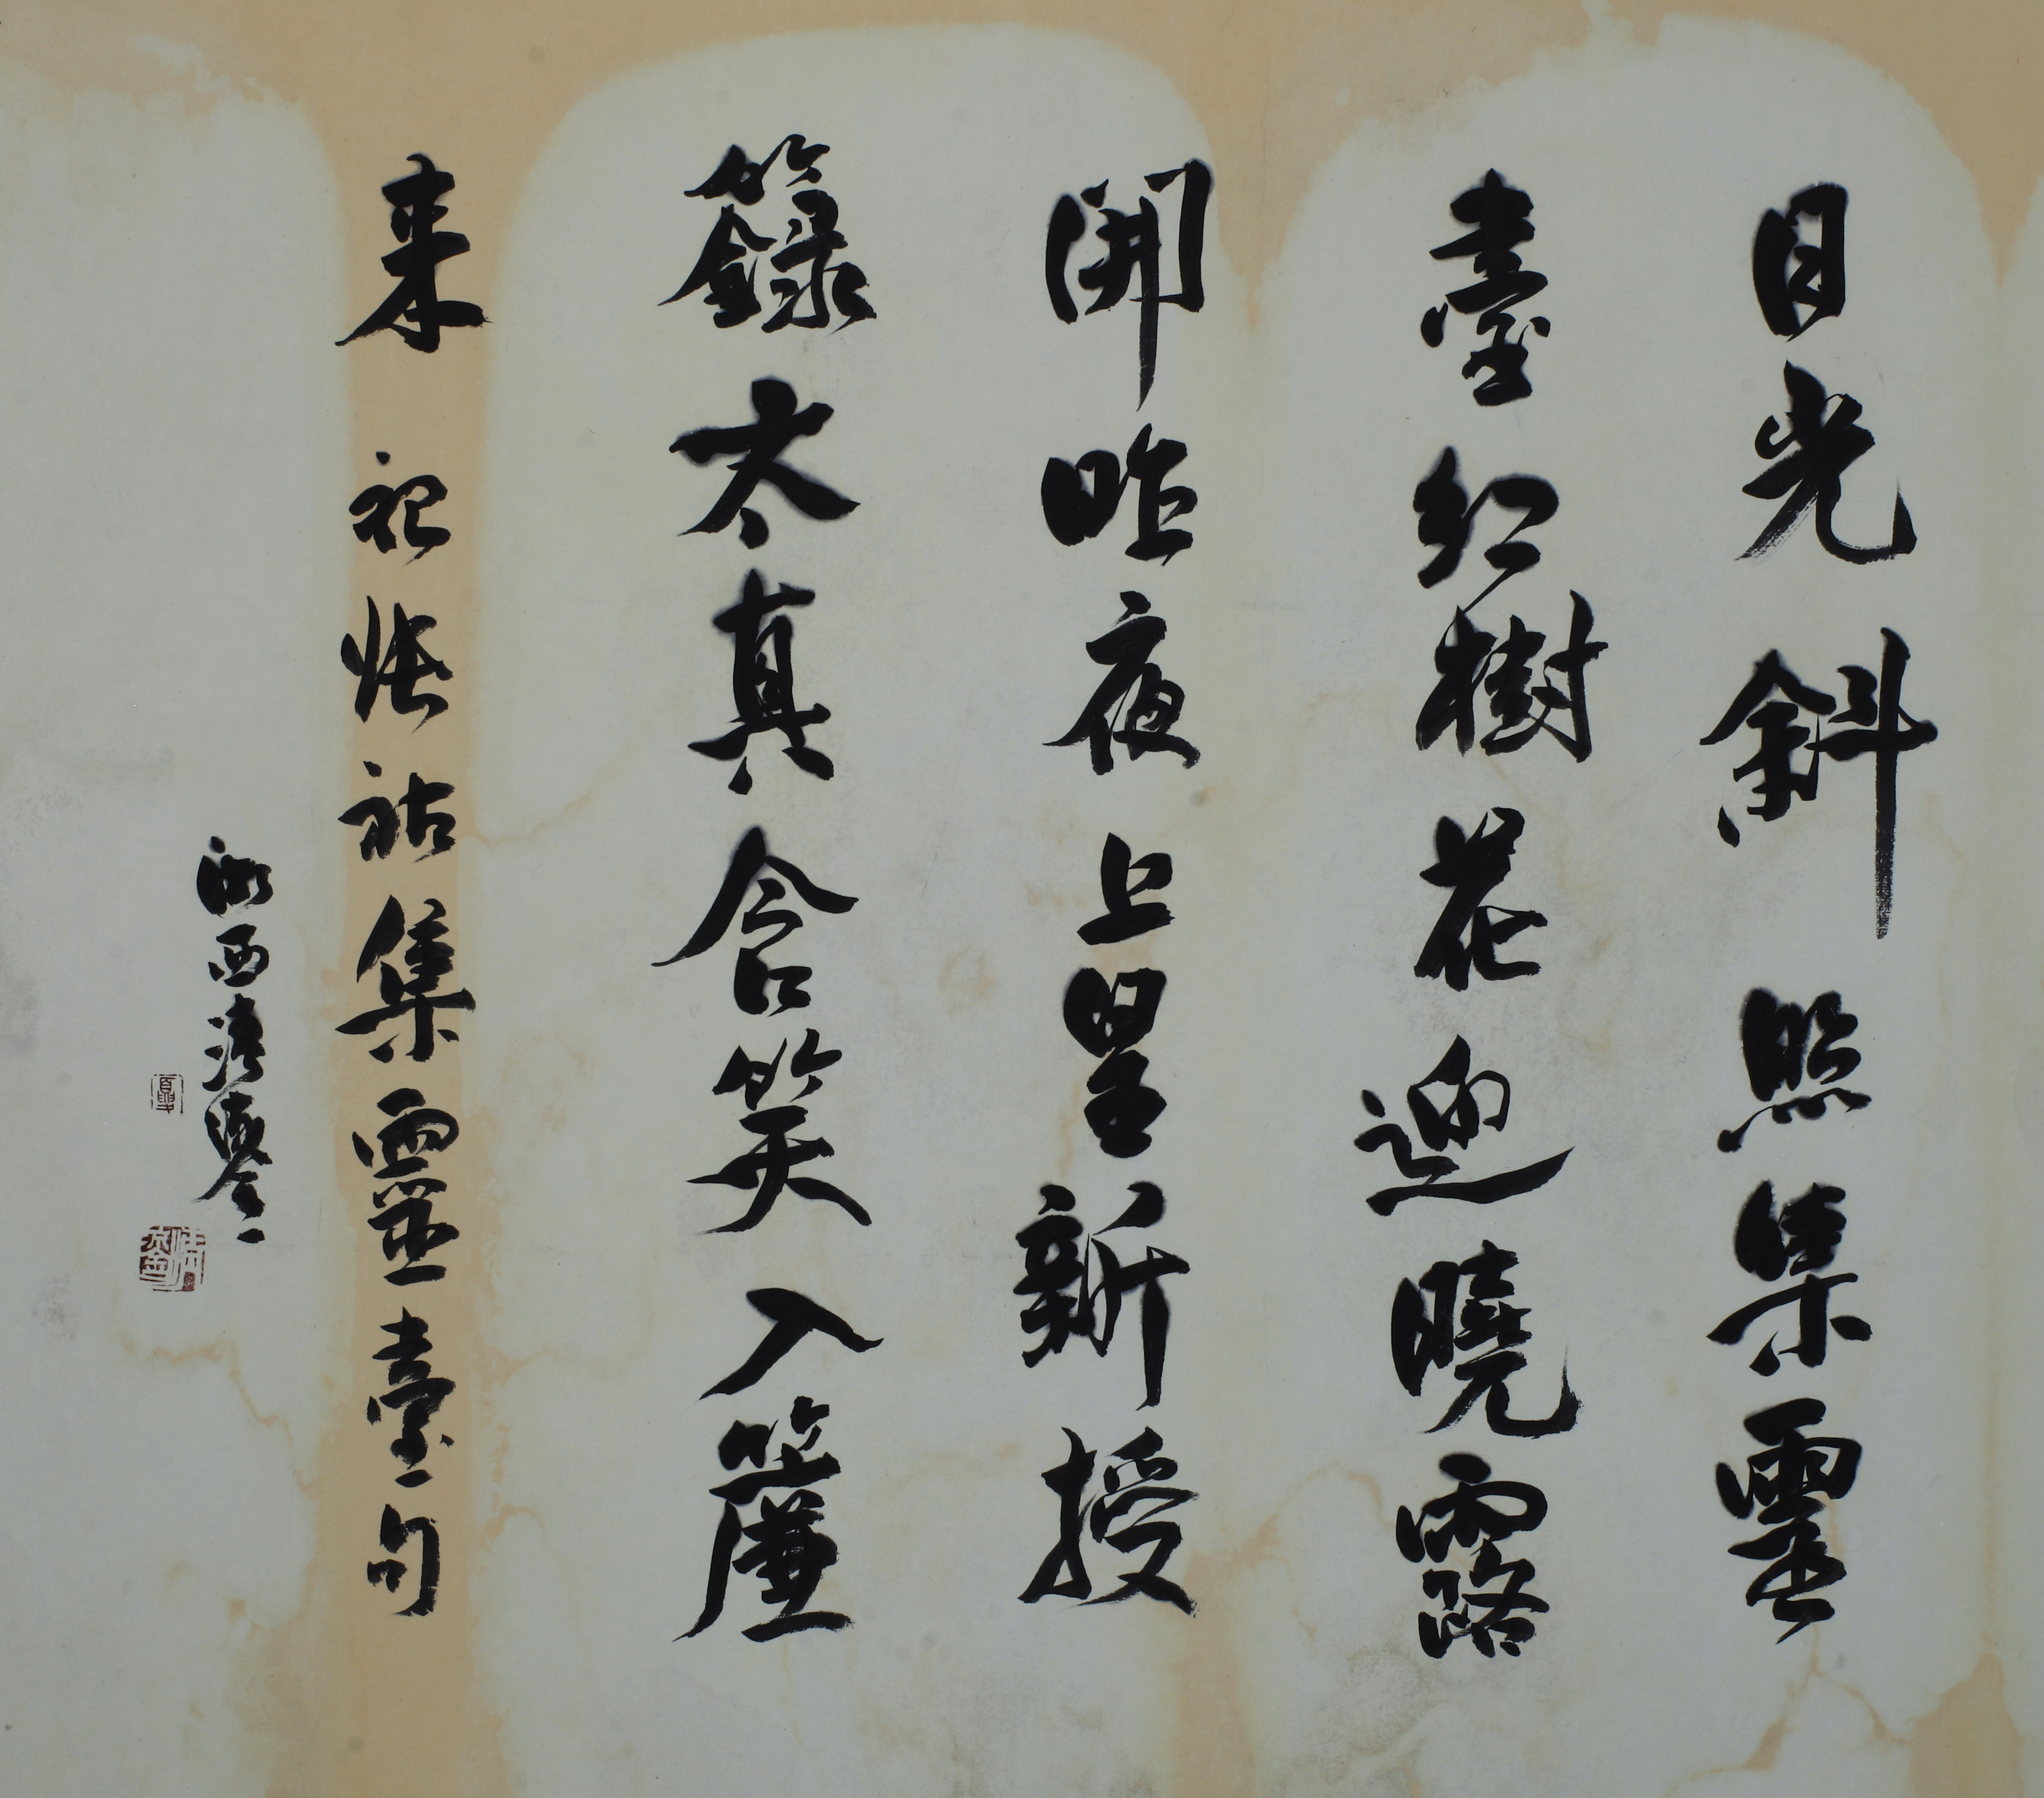 日光斜照集靈
臺紅樹花迎曉露
開昨夜上皇新授
籙太真含笑入簾
來 祀張祜集靈臺句
西清